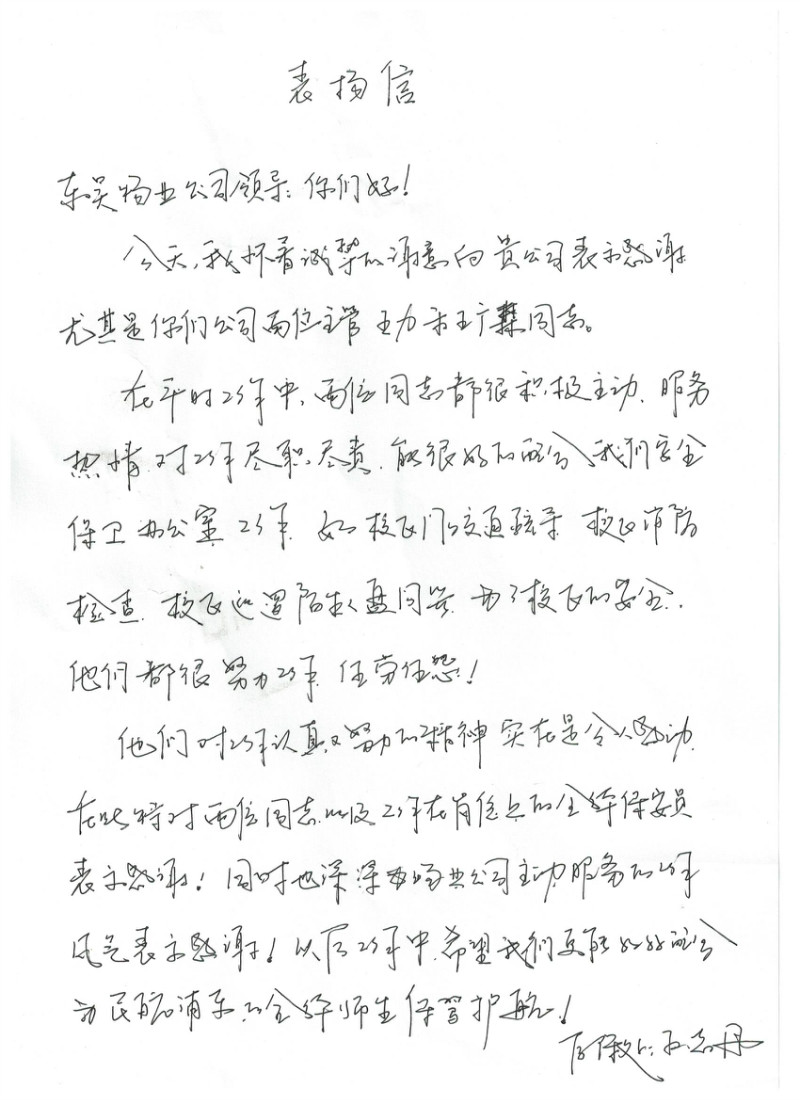 表扬信
东吴物业公司领导：你们好！
今天，我怀着诚挚的谢意向贵公司表示感谢
尤其是你们公司两位主管王力和王广同志。
在平时工作中，两位同志都很积极主动、服务
热情，对工作尽职尽责，能很好的配合我们安全
保卫办公室工作，如校门口交通疏导，校内消防
检查，校内巡逻陌生人盘问等，为了校内的安全，
他们都很努力工作，任劳任怨！
他们对工作认真又努力的精神实在是令人感动，
在此特对两位同志以及工作在岗位上的全体保安员
表示感谢！同时也深深为物业公司主动服务的工作
风气表示感谢！以后工作中，希望我们更能好好配合
为民航浦东的全体师生保驾护航！